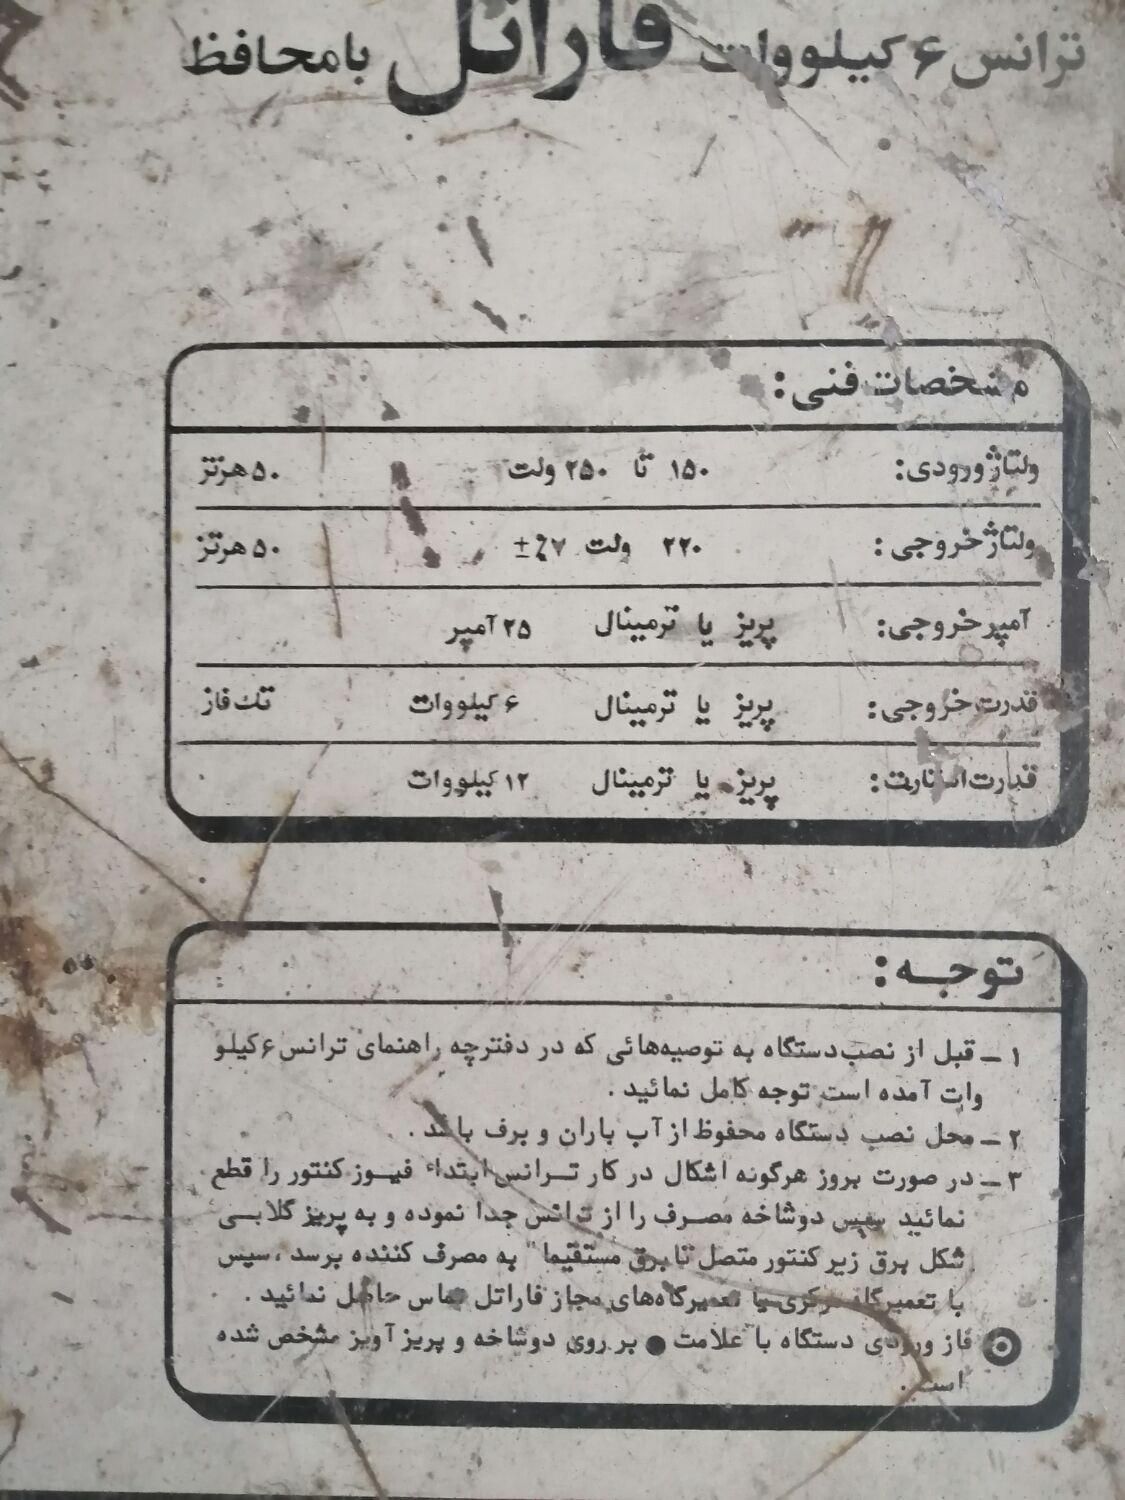 ترانس ۶ کیلووات فاراتل بامحافظ
مشخصات فنی:
ولتاژ ورودی: ۱۵۰ تا ۲۵۰ ولت ۵۰ هرتز
ولتاژ خروجی: ۲۲۰ ولت ۷٪± ۵۰ هرتز
آمپر خروجی: پریز یا ترمینال ۲۵ آمپر
قدرت خروجی: پریز یا ترمینال ۶ کیلووات تک فاز
قدرت استارت: پریز یا ترمینال ۱۲ کیلووات
توجه:
۱ – قبل از نصب دستگاه به توصیه‌هائی که در دفترچه راهنمای ترانس ۶ کیلو
وات آمده است توجه کامل نمائید.
۲ – محل نصب دستگاه محفوظ از آب باران و برف باشد.
۳ – در صورت بروز هرگونه اشکال در کار ترانس ابتداء فیوز کنتور را قطع
نمائید سپس دوشاخه مصرف را از ترانس جدا نموده و به پریز گلابی
شکل برق زیر کنتور متصل تا برق مستقیما" به مصرف کننده برسد، سپس
با تعمیرگاه مرکزی یا تعمیرگاه‌های مجاز فاراتل تماس حاصل نمائید.
فاز ورودی دستگاه با علامت ● بر روی دوشاخه و پریز آویز مشخص شده
است.